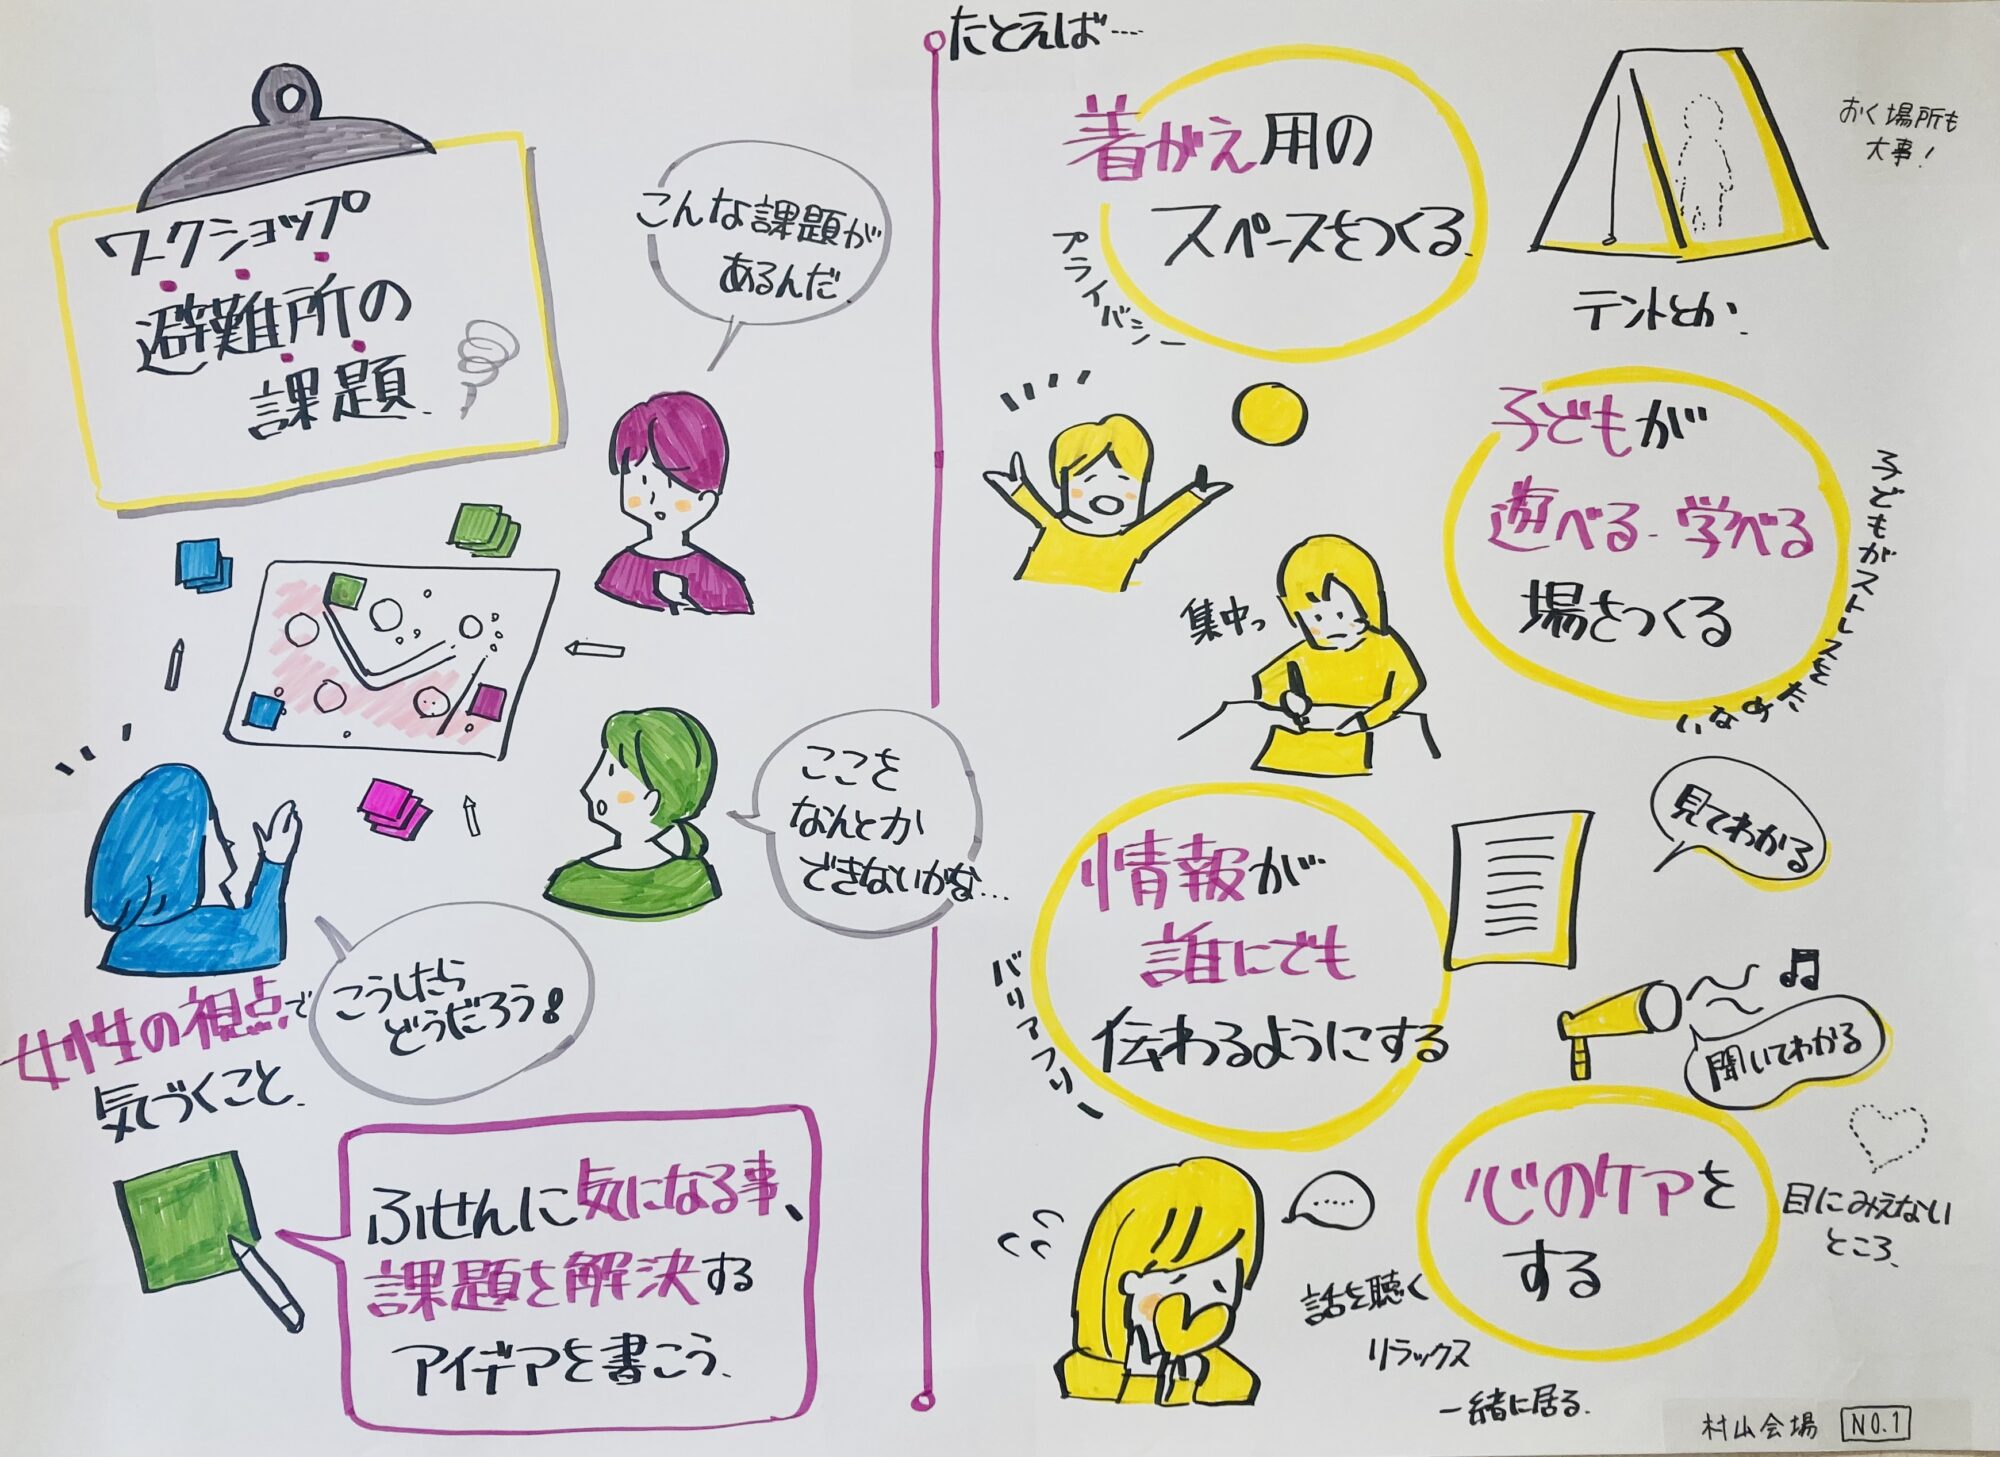 ワークショップ
避難所の
課題.
こんな課題が
あるんだ.
ここを
なんとか
できないかな…
こうしたら
どうだろう!
女性の視点で
気づくこと.
ふせんに気になる事、
課題を解決する
アイデアを書こう.
たとえば…
着がえ用の
スペースをつくる.
プライバシー
テントとか.
おく場所も
大事!
子どもが
遊べる・学べる
場をつくる
子どもがストレスをためないように
集中っ
情報が
誰にでも
伝わるようにする
バリアフリー
見てわかる
聞いてわかる
心のケアを
する
目にみえない
ところ.
……
話を聴く
リラックス
一緒に居る.
村山会場 NO.1